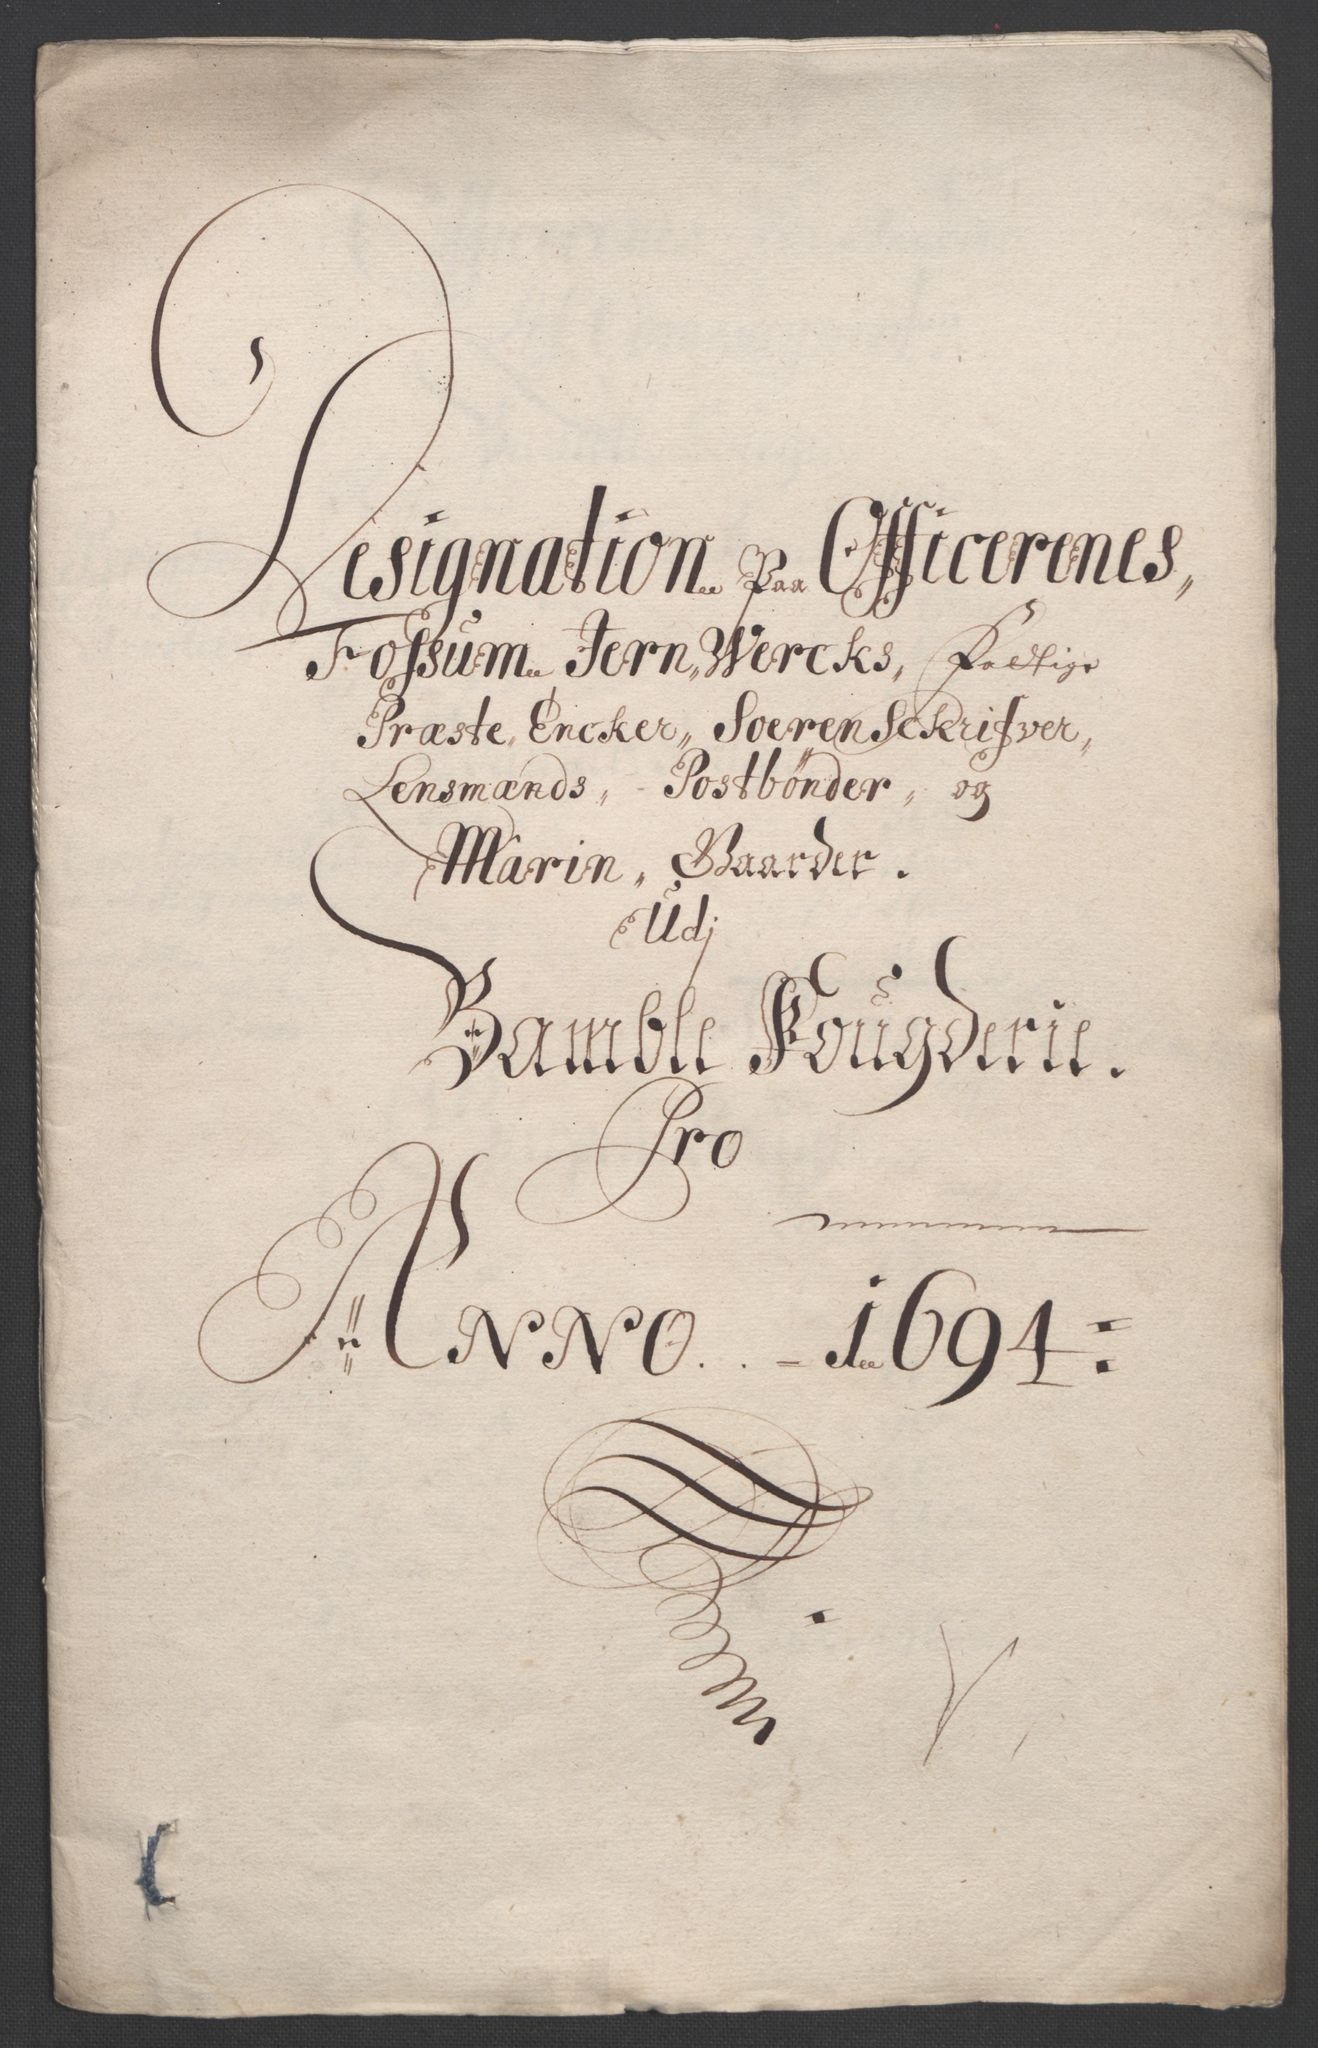 Designation Paa Officerenes,
Fossum Jern, Wercks, Fattige
Præste, Encker, Soeren Schrifver,
Lensmænds, Postbønder, og
Marin, Gaarder.
Udj
Bamble Fougderie.
Pro
Anno 1694: